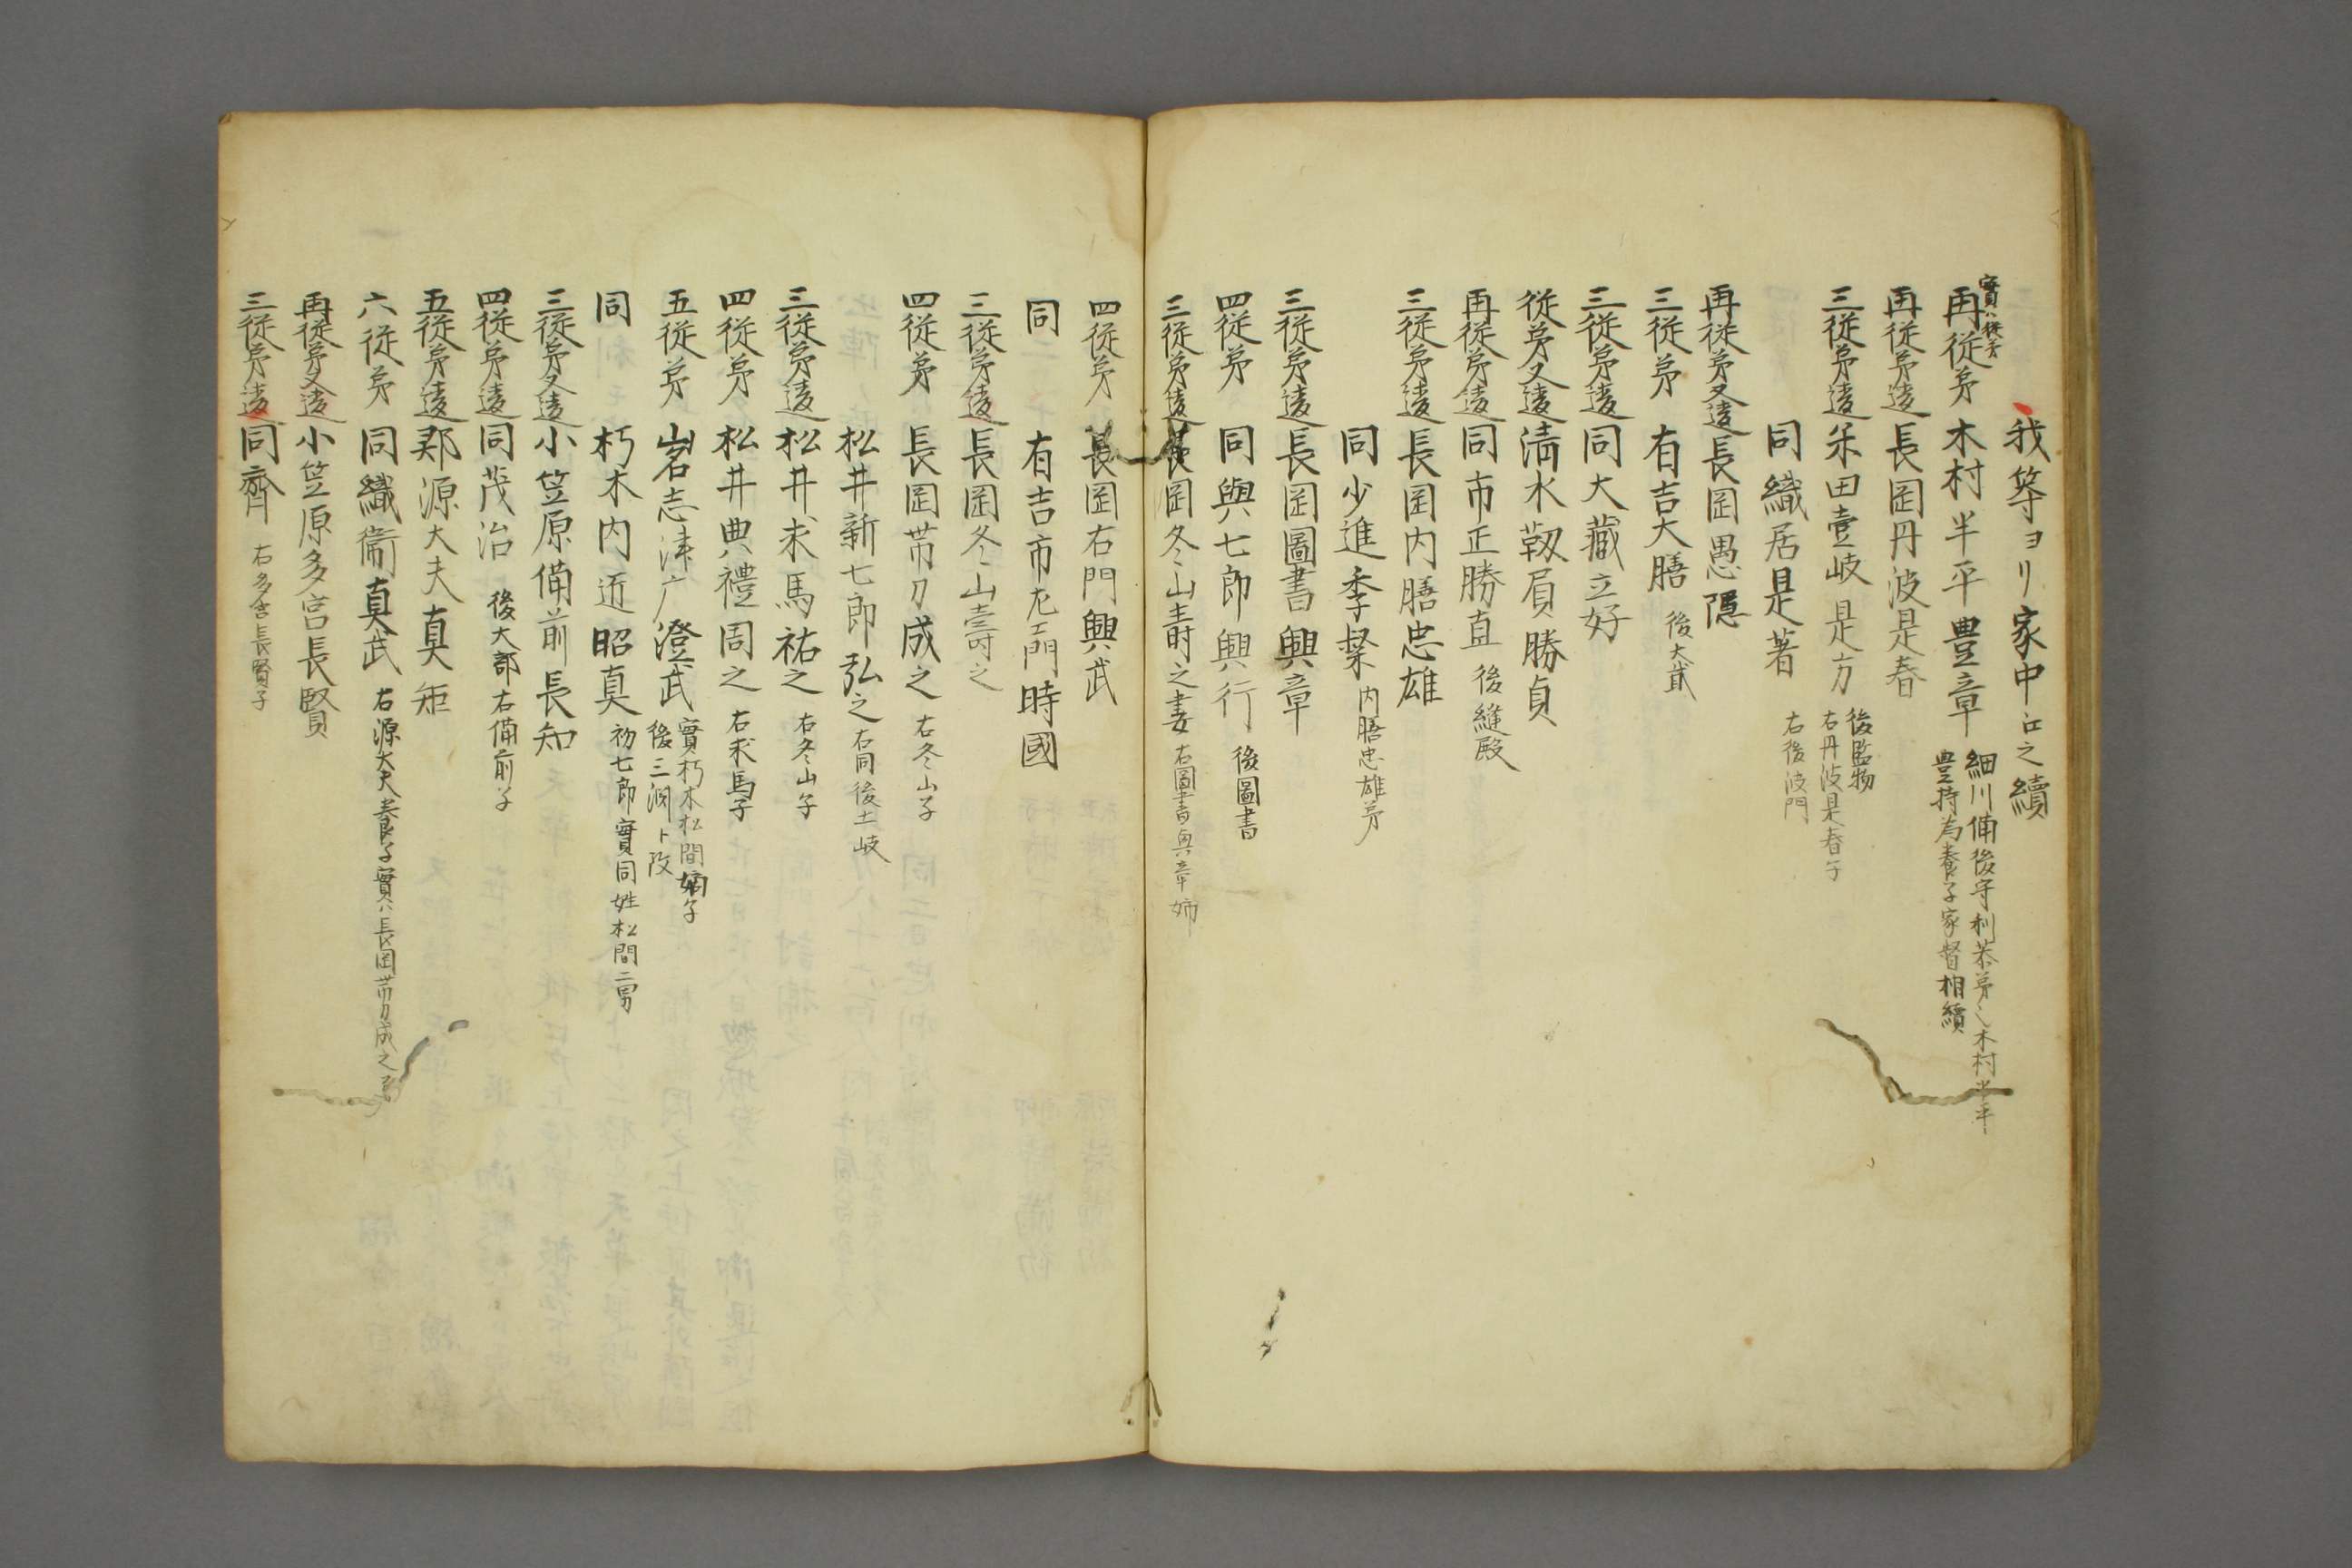 我等ヨリ家中江之續
實ハ従弟
再従弟 木村半平豊章 細川備後守利恭弟ニ木村半平
豊持為養子家督相續
再従弟違 長岡丹波是春
三従弟違 米田壹岐是方 後監物
右丹波是春子
同織居是著 右後波門
再従弟又違 長岡愚隠
三従弟 有吉大膳 後大貳
三従弟違 同大藏立好
従弟又違 清水靱屓勝貞
再従弟違 同市正勝直 後縫殿
三従弟違 長岡内膳忠雄
同少進季 内膳忠雄弟
三従弟違 長岡圖書興章
四従弟 同與七郎興行 後圖書
三従弟違 長岡冬山壽之妻 右圖書興章姉
四従弟 長岡右門興武
同 有吉市左エ門時國
三従弟違 長岡冬山壽之
四従弟 長岡帯刀成之 右冬山子
松井新七郎弘之 右同後土岐
三従弟違 松井求馬祐之 右冬山子
四従弟 松井典禮周之 右求馬子
五従弟 岩志津广澄武 實朽木松間嫡子
後三渕ト改
同 朽木内近昭真 初七郎實同姓松間二男
三従弟又違 小笠原備前長知
四従弟違 同茂治 後大部右備前子
五従弟違 郡源大夫真矩
六従弟 同織衛真武 右源大夫養子實ハ長岡帯刀成之弟
再従弟又違 小笠原多宮長賢
三従弟違 同齊 右多宮長賢子